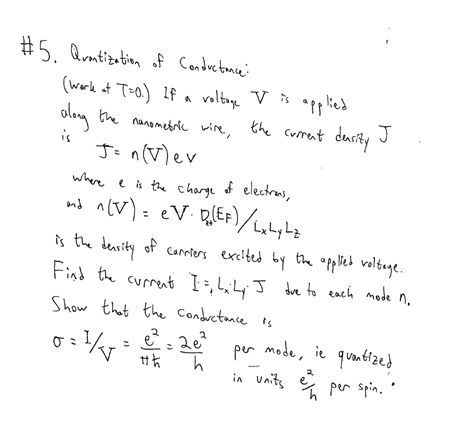 #5. Quantization of Conductance:
(work at T=0.) If a voltage V is applied
along the nanometric wire, the current density J
is
J = n(V) e v
where e is the charge of electrons,
and n(V) = eV · D(E_F) / LxLyLz
is the density of carriers excited by the applied voltage.
Find the current I = Lx Ly J due to each mode n.
Show that the conductance is
σ = I/V = e²/πħ = 2e²/h per mode, ie quantized
in units e²/h per spin.